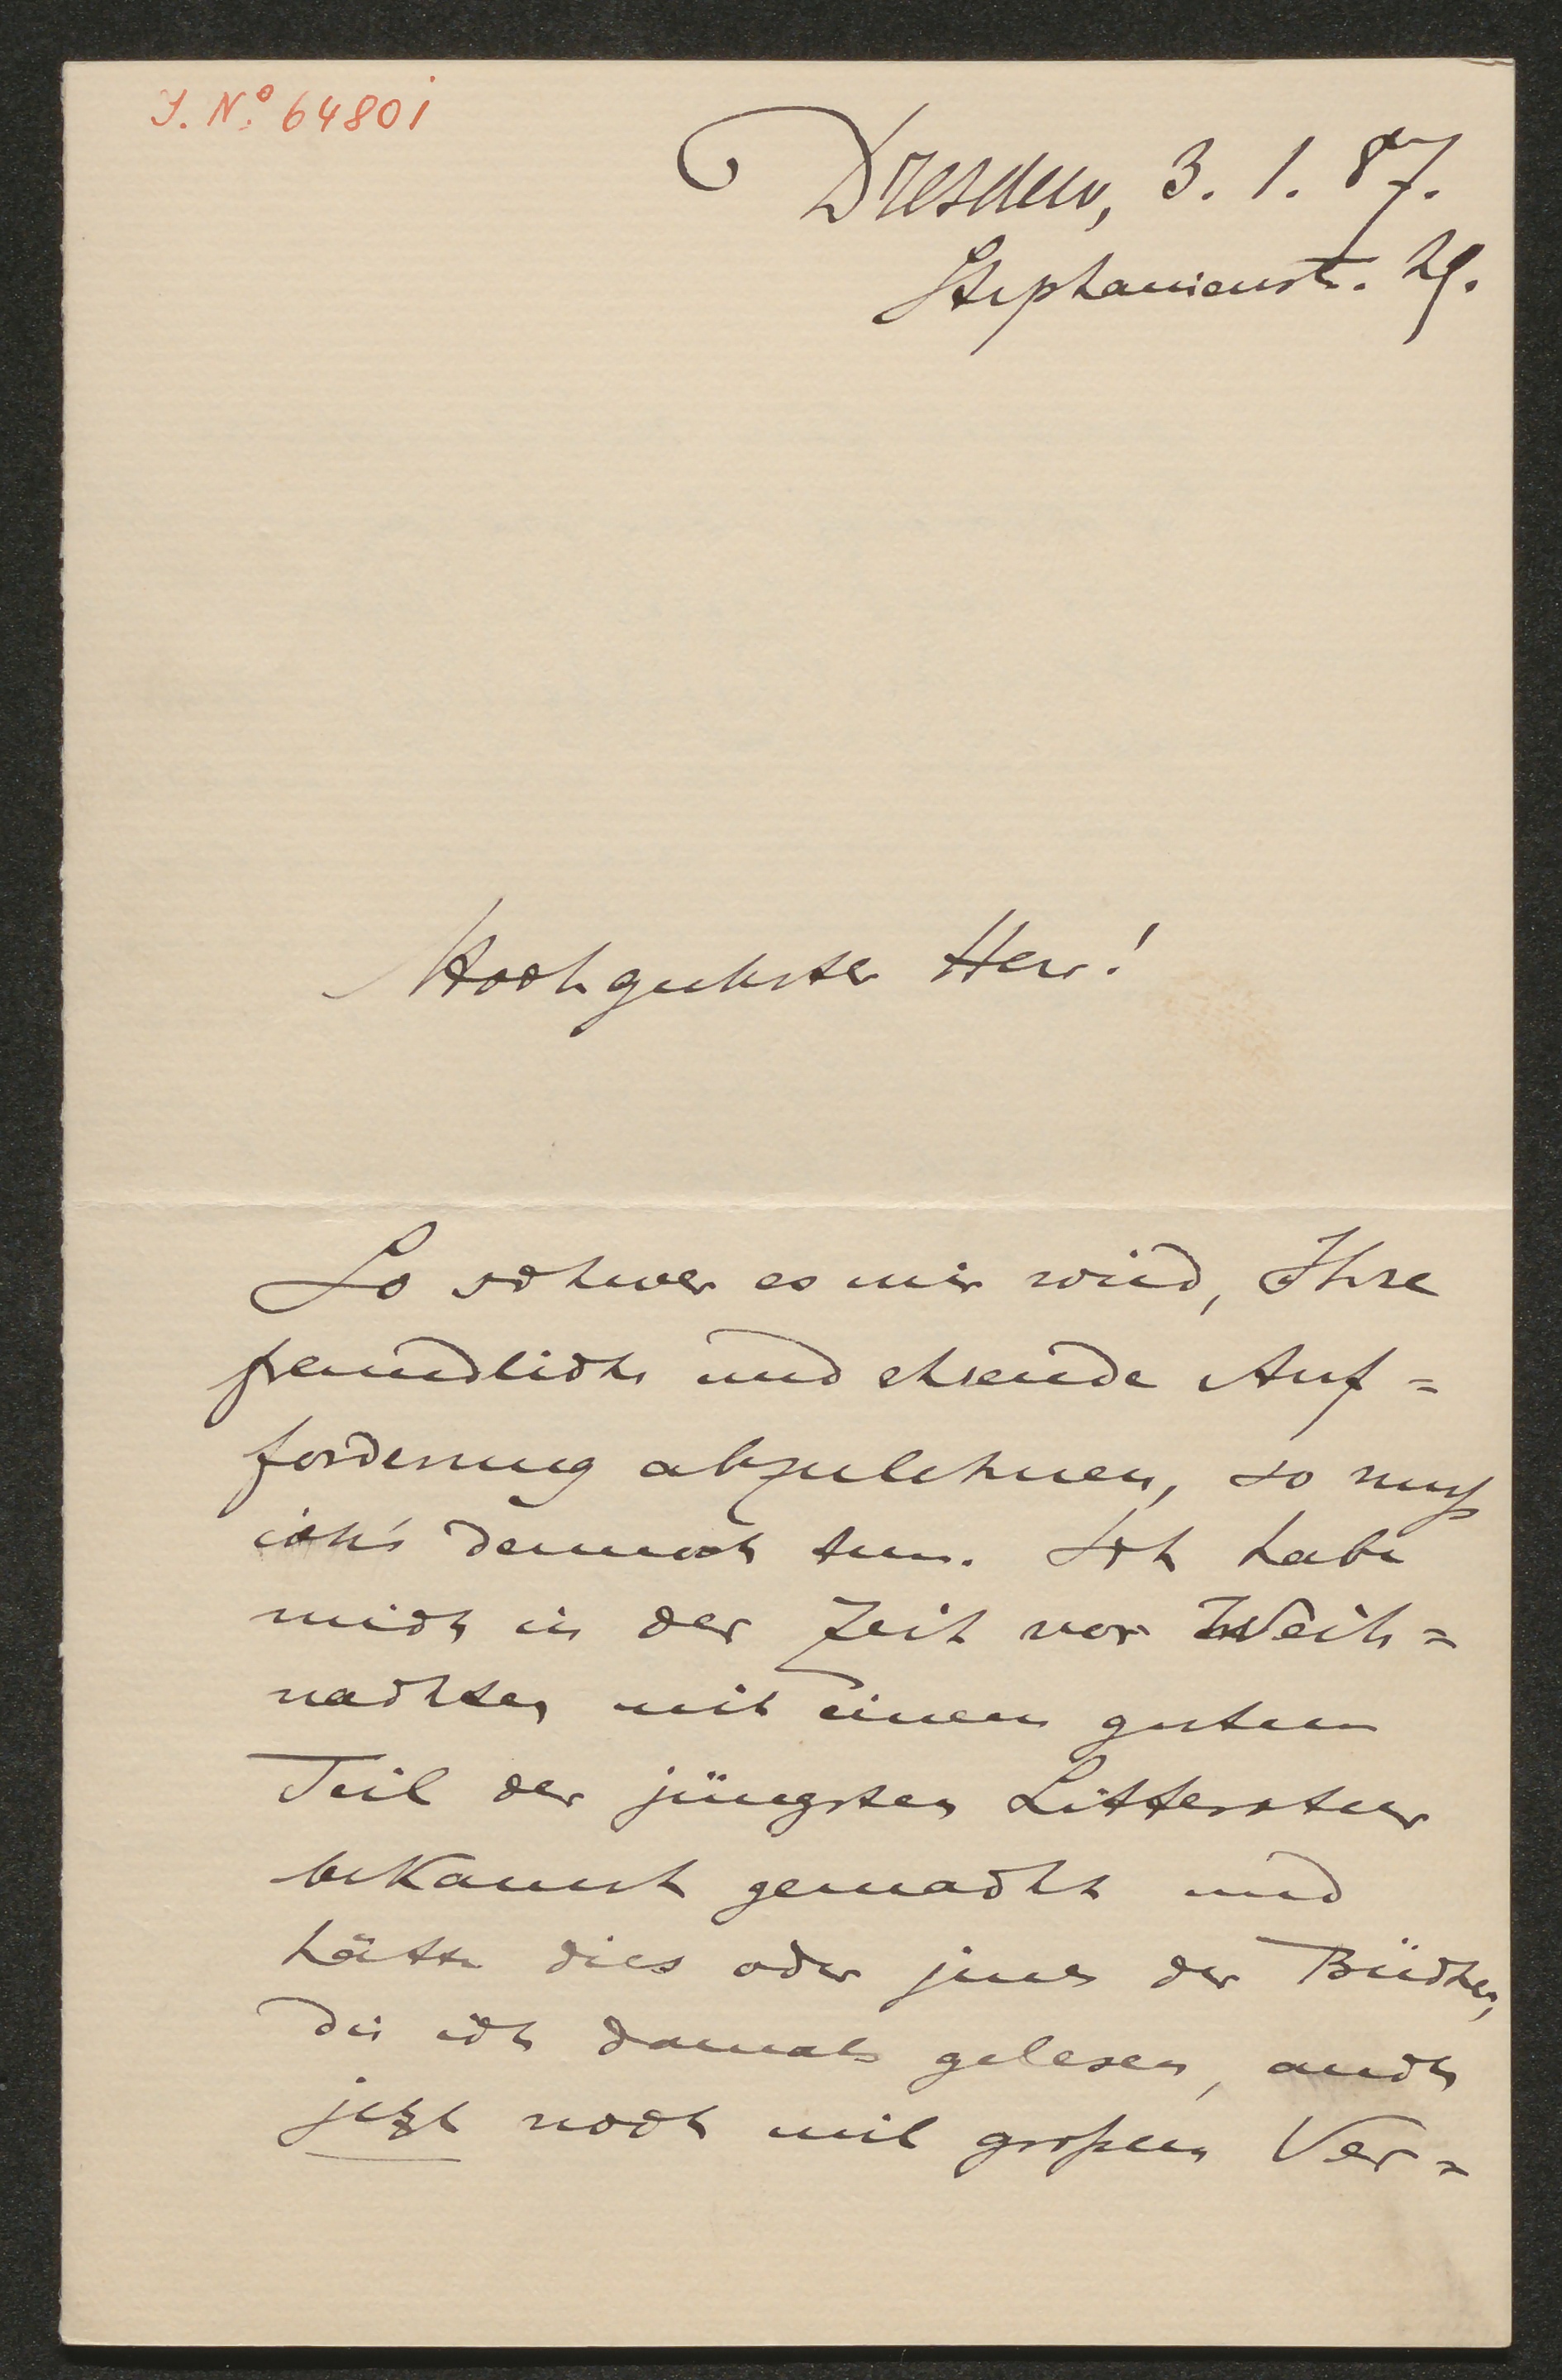 J. Nº 64801
Dresden, 3. 1. 87.
Stephanienstr. 29.
Hochgeehrter Herr!
So schwer es mir wird, Ihre
freundliche und ehrende Auf=
forderung abzulehnen, so muß
ich's dennoch tun. Ich habe
mich in der Zeit vor Weih=
nachten mit einem guten
Teil der jüngsten Litteratur
bekannt gemacht und
hätte dies oder jenes der Bücher,
die ich damals gelesen, auch
jetzt noch mit großem Ver=